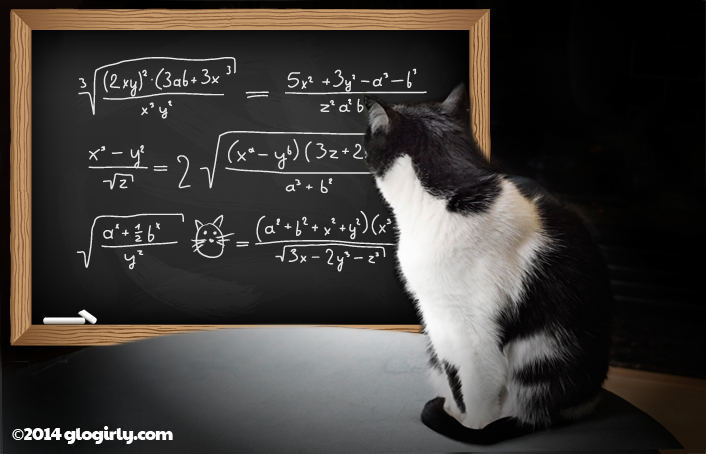 ∛((2xy)²·(3ab+3x³)/(x³y²)) = (5x²+3y²-a³-b³)/(z²a²b
(x³-y²)/√z = 2√((xᵃ-y⁶)(3z+2)/(a³+b²)
√((a²+½b²)/y²) = (a²+b²+x²+y²)(x³/√(3x-2y³-z³)
©2014 glogirly.com